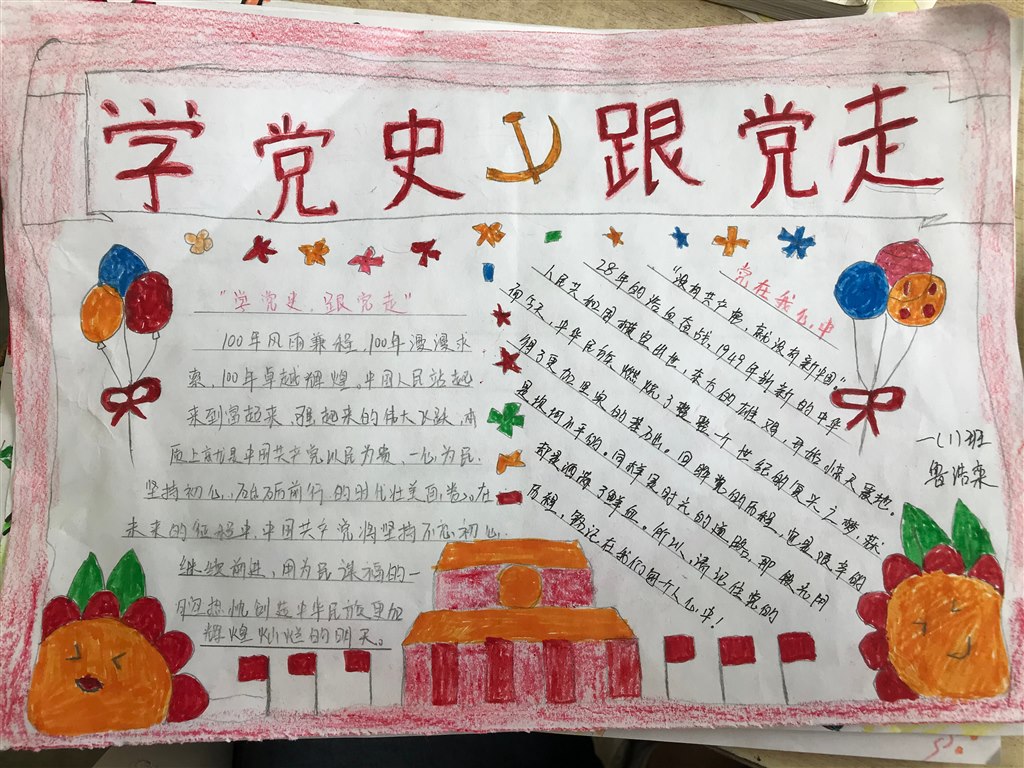 学党史跟党走
"学党史,跟党走"
100年风雨兼程,100年漫漫求
索,100年卓越辉煌,中国人民站起
来到富起来、强起来的伟大飞跃,
面上就是中国共产党以民为贵,一心为民.
坚持初心,砥砺前行的时代壮美画卷。在
未来的征程中,中国共产党将坚持不忘初心.
继续前进,用为民谋福的一
腔热忱创造中华民族更加
辉煌灿烂的明天。
党在我心中
"没有共产党,就没有新中国"。
28年的浴血奋战,1949年崭新的中华
人民共和国横空出世,东方的雄鸡,开始惊天震地。
而今天,中华民族燃烧了整整一个世纪的复兴之梦,获
得了更加坚实的基础。回眸党的历程,它是艰辛的
是坎坷不平的。同样是时光的道路,那
都是洒满了鲜血。所以,请记住党的
历程,铭记在我们每个人心中!
一(1)班
鲁浩来